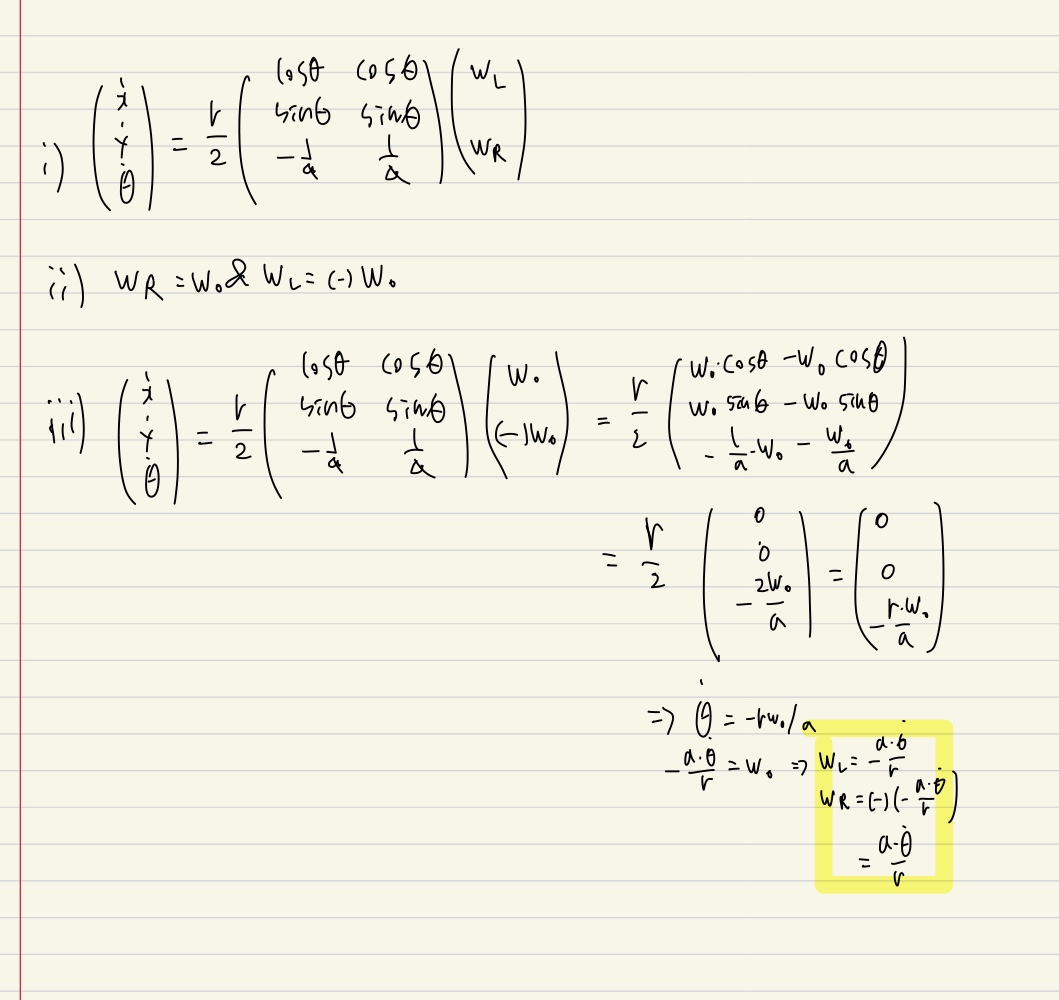 i) (ẋ ẏ θ̇) = r/2 (cosθ cosθ sinθ sinθ -1/a 1/a) (W_L W_R)
ii) W_R = W₀ & W_L = (-) W₀
iii) (ẋ ẏ θ̇) = r/2 (cosθ cosθ sinθ sinθ -1/a 1/a) (W₀ (-)W₀) = r/2 (W₀·cosθ -W₀ cosθ W₀ sinθ - W₀ sinθ -1/a·W₀ - W₀/a)
= r/2 (0 0 -2W₀/a) = (0 0 -r·W₀/a)
=> θ̇ = -rw₀/a
-a·θ̇/r = W₀ => W_L = -a·θ̇/r
W_R = (-)(-a·θ̇/r)
= a·θ̇/r